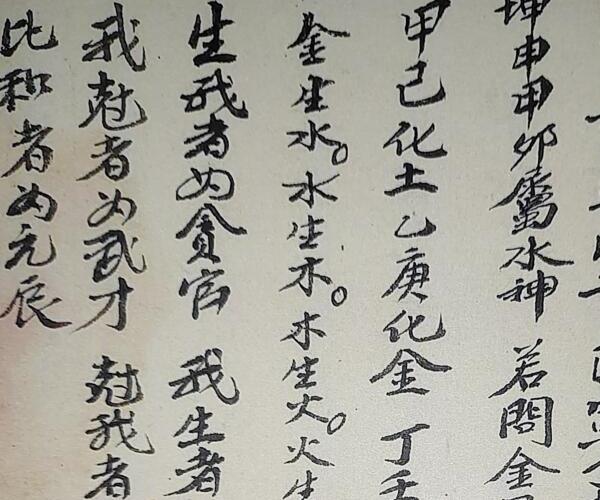 坤申甲卯屬水神 若問金
甲己化土乙庚化金 丁壬
金生水。水生木。木生火。火生
生我者为貪官 我生者
我尅者为武才 尅我者
比和者为元辰